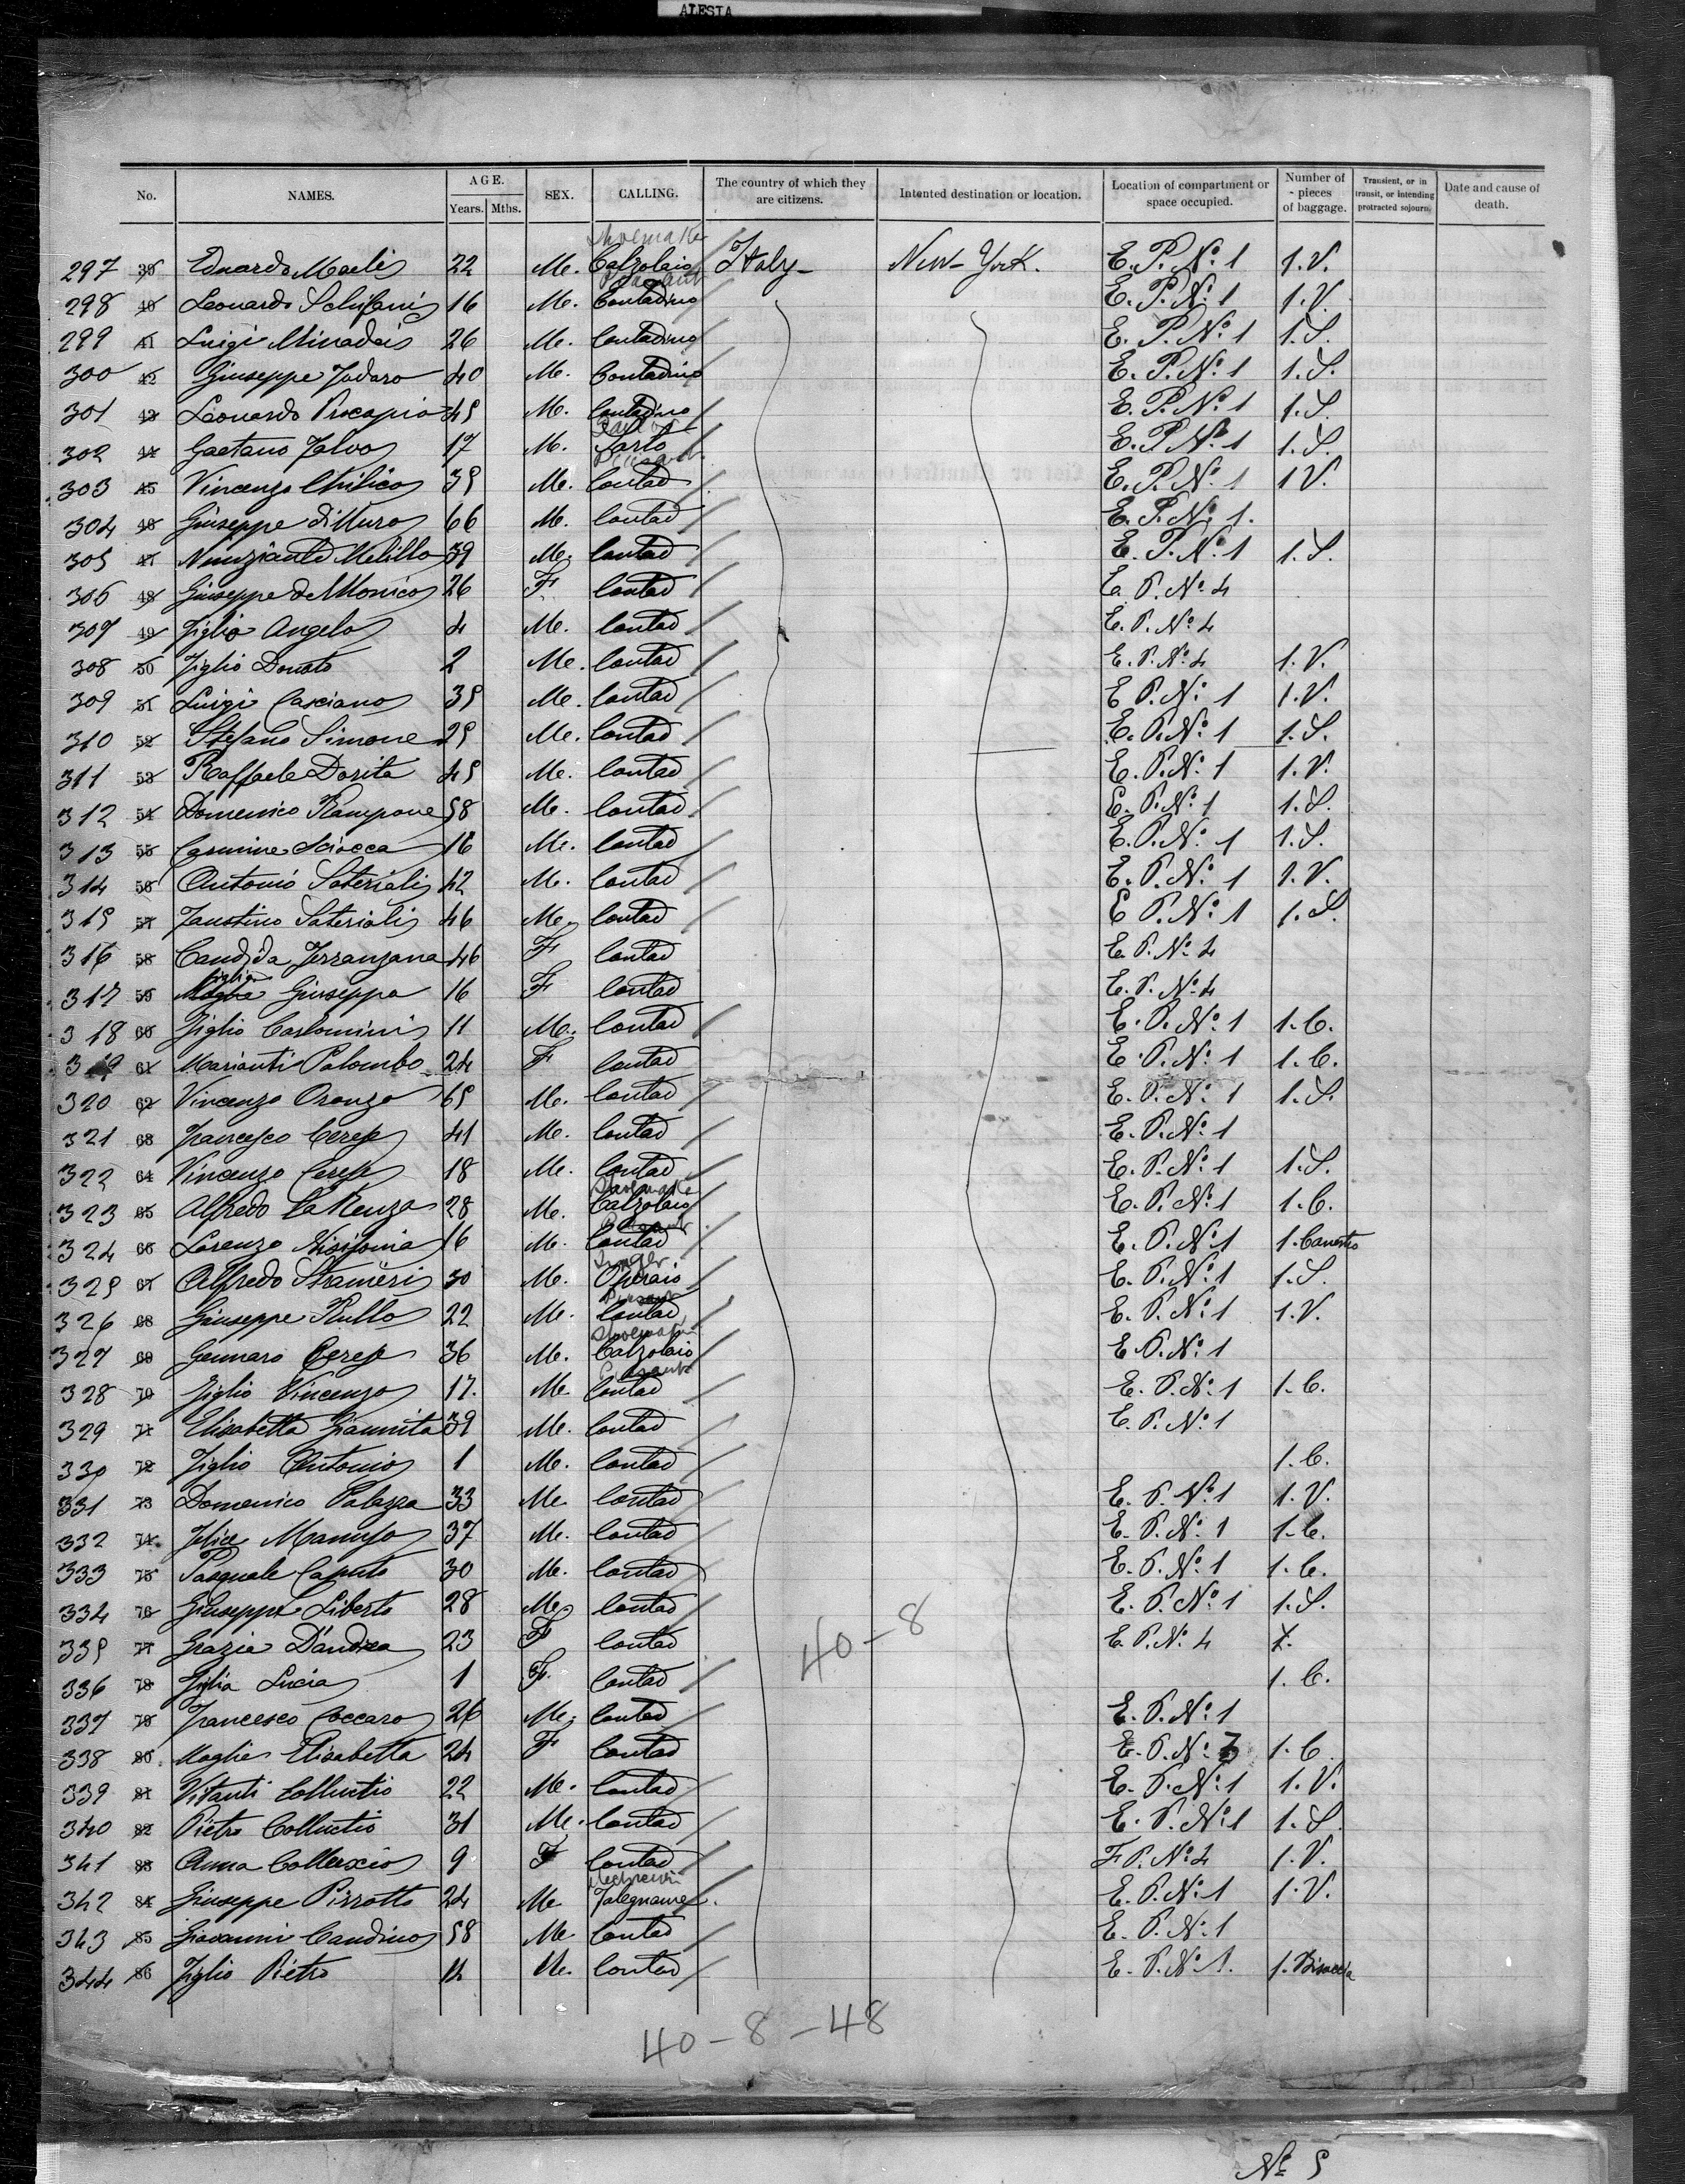 ALESIA
No. NAMES. AGE. Years. Mths. SEX. CALLING. The country of which they are citizens. Intented destination or location. Location of compartment or space occupied. Number of pieces of baggage. Transient, or in transit, or intending protracted sojourn. Date and cause of death.
Shoemaker
297 39 Eduardo Maeli 22 M. Calzolaio Italy New-York. E. P. No. 1 1. V.
Peasant
298 40 Leonardo Schifani 16 M. Contadino E. P. No. 1 1. V.
299 41 Luigi Minadeo 26 M. Contadino E. P. No. 1 1. S.
300 42 Giuseppe Todaro 40 M. Contadino E. P. No. 1 1. S.
301 43 Leonardo Procopio 45 M. Contadino E. P. No. 1 1. S.
Tailor
302 44 Gaetano Falvo 17 M. Sarto E. P. No. 1 1. S.
Peasant
303 45 Vincenzo 35 M. Contad E. P. No. 1 1 V.
304 46 Giuseppe di Muro 66 M. Contad E. P. No. 1.
305 47 Nunziante Melillo 39 M. Contad E. P. No. 1 1. S.
306 48 Giuseppe de Monico 26 F Contad E. P. No. 4
307 49 Figlio Angelo 4 M. Contad E. P. No. 4
308 50 Figlio Donato 2 M. Contad E. P. No. 4 1. V.
309 51 Luigi Casciano 35 M. Contad E P. No. 1 1. V.
310 52 Stefano Simone 25 M. Contad E. P. No. 1 1. S.
311 53 Raffaele Dorita 45 M. Contad E. P. No. 1 1. V.
312 54 Domenico Rampone 58 M. Contad E. P. No. 1 1. S.
313 55 Carmine Sciocca 16 M. Contad E. P. No. 1 1. S.
314 56 Antonio Sateriali 42 M. Contad E. P. No. 1 1. V.
315 57 Faustino Sateriali 46 M. Contad E P. No. 1 1. S.
316 58 Candida Terranzana 46 F Contad E. P. No. 4
figlia
317 59 Moglie Giuseppa 16 F Contad E. P. No. 4
318 60 Figlio 11 M. Contad E. P. No. 1 1. C.
319 61 Marianti Palombo 24 F Contad E. P. No. 1 1. C.
320 62 Vincenzo Oronzo 65 M. Contad E. P. No. 1 1. S.
321 63 Francesco Cerese 41 M. Contad E. P. No. 1
322 64 Vincenzo Cerese 18 M. Contad E. P. No. 1 1. S.
Shoemake
323 65 Alfredo La Renza 28 M. Calzolaio E. P. No. 1 1. C.
Peasant
324 66 Lorenzo 16 M. Contad E. P. No. 1 1. Canestro
325 67 Alfredo Stranieri 30 M. Operaio E. P. No. 1 1. S.
Peasant
326 68 Giuseppe Rullo 22 M. Contad E. P. No. 1 1. V.
Shoemaker
327 69 Gennaro Cerese 36 M. Calzolaio E P. No. 1
Peasant
328 70 Figlio Vincenzo 17. M. Contad E. P. No. 1 1. C.
329 71 Elisabetta Giannita 39 M. Contad E. P. No. 1
330 72 Figlio Antonio 1 M. Contad 1. C.
331 73 Domenico Palazza 33 M. Contad E. P. No. 1 1. V.
332 74 Felice Manuso 37 M. Contad E. P. No. 1 1. C.
333 75 Pasquale Caputo 30 M. Contad E. P. No. 1 1. C.
334 76 Giuseppe Liberto 28 M. Contad E. P. No. 1 1. S.
335 77 Grazia D'andrea 23 F Contad E. P. No. 4 1.
40-8
336 78 Figlia Lucia 1 F. Contad 1. C.
337 79 Francesco Coccaro 26 M. Contad E. P. No. 1
338 80 Moglie Elisabetta 24 F Contad E. P. No. 3 1. C.
339 81 Vitanti Colluctio 22 M. Contad E. P. No. 1 1. V.
340 82 Pietro Colluctio 31 M. Contad E. P. No. 1 1. S
341 83 Anna 9 F Contad F P. No. 4 1. V.
342 84 Giuseppe Pirrotto 24 M Falegname E. P. No. 1 1. V.
343 85 Giovanni Candino 58 M. Contad E. P. No. 1
344 86 Figlio Pietro 14 M. Contad E. P. No. 1. 1. Bisaccia
40-8-48
No 5